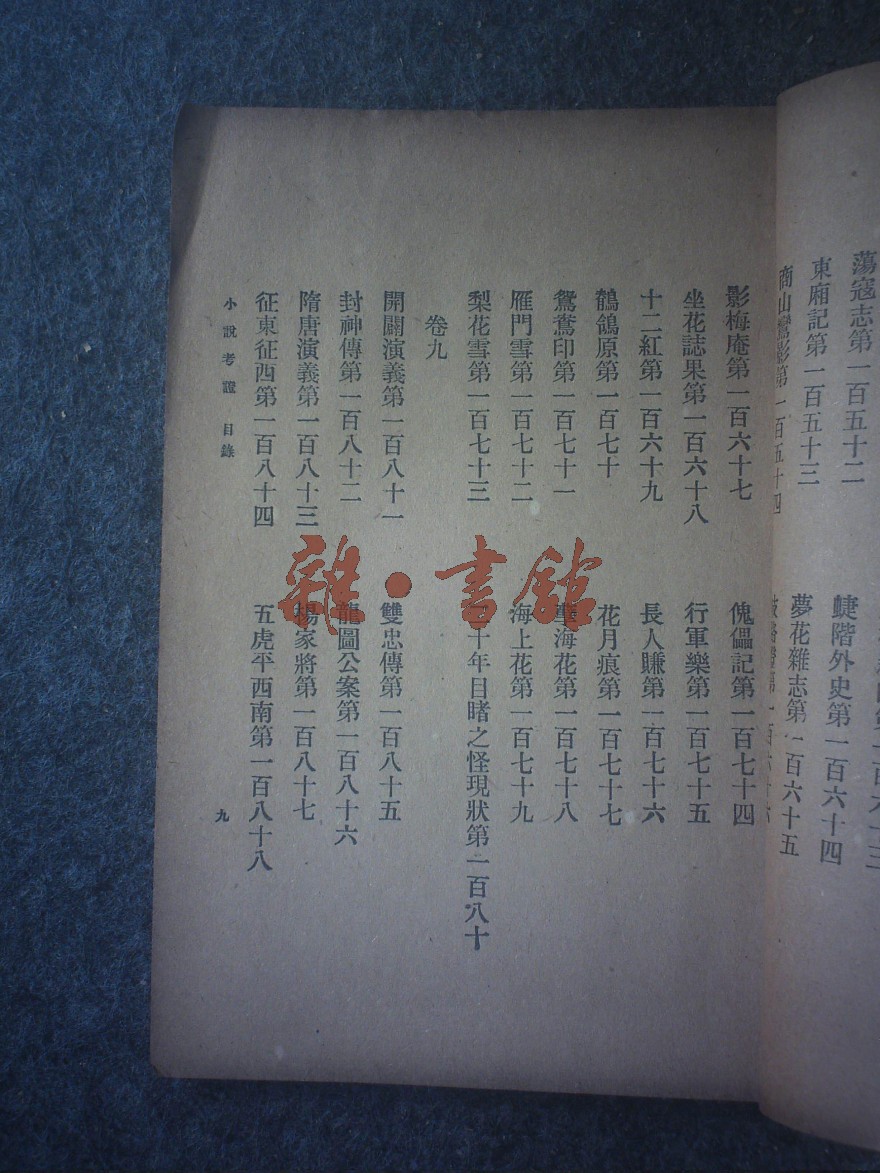 蕩寇志第一百五十二
東廂記第一百五十三
商山鸞影第一百五十四
蜨階外史第一百六十四
夢花雜志第一百六十五
影梅庵第一百六十七
坐花誌果第一百六十八
十二紅第一百六十九
鶺鴒原第一百七十
鴛鴦印第一百七十一
雁門雪第一百七十二
梨花雪第一百七十三
傀儡記第一百七十四
行軍樂第一百七十五
長人賺第一百七十六
花月痕第一百七十七
海花第一百七十八
海上花第一百七十九
十年目睹之怪現狀第一百八十
卷九
開闢演義第一百八十一
封神傳第一百八十二
隋唐演義第一百八十三
征東征西第一百八十四
雙忠傳第一百八十五
龍圖公案第一百八十六
楊家將第一百八十七
五虎平西南第一百八十八
小說考證 目錄
九
雜·書館